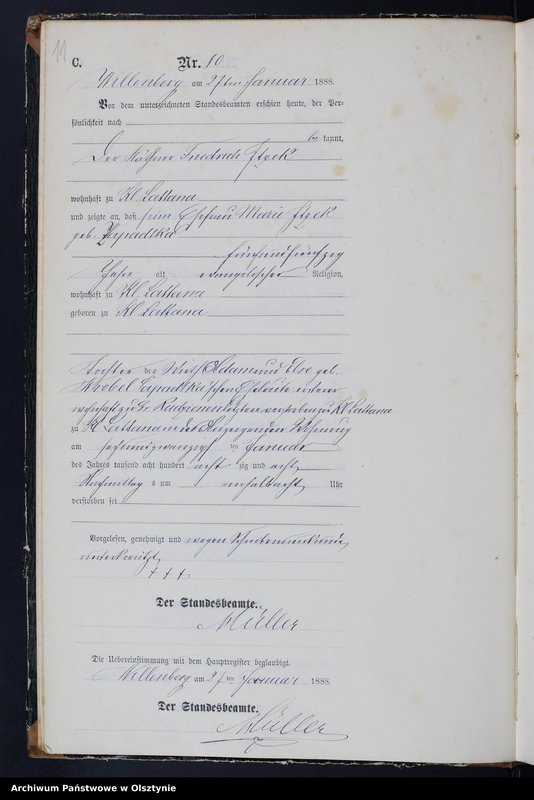 11
C.
Nr. 10
Willenberg am 27ten Januar 1888.
Vor dem unterzeichneten Standesbeamten erschien heute, der Per-
sönlichkeit nach
be kannt,
Der Friedrich
wohnhaft zu Kl. Lattana
und zeigte an, daß seine Ehefrau Marie
geb.
fünfundfünfzig
Jahre alt evangelischer Religion,
wohnhaft zu Kl. Lattana
geboren zu Kl. Lattana
Tochter der Wirth Adam und Else geb.
Wrobel Eheleute
wohnhaft zu Gr. verstorben zu Kl. Lattana
zu Kl. Lattana in des Anzeigenden Wohnung
am sechsundzwanzigsten Januar
des Jahres tausend acht hundert acht zig und acht
Nachmittag s um Uhr
verstorben sei
Vorgelesen, genehmigt und wegen
unterkreuzt
† † †
Der Standesbeamte.
Müller
Die Uebereinstimmung mit dem Hauptregister beglaubigt.
Willenberg am 27ten Januar 1888.
Der Standesbeamte.
Müller
Archiwum Państwowe w Olsztynie